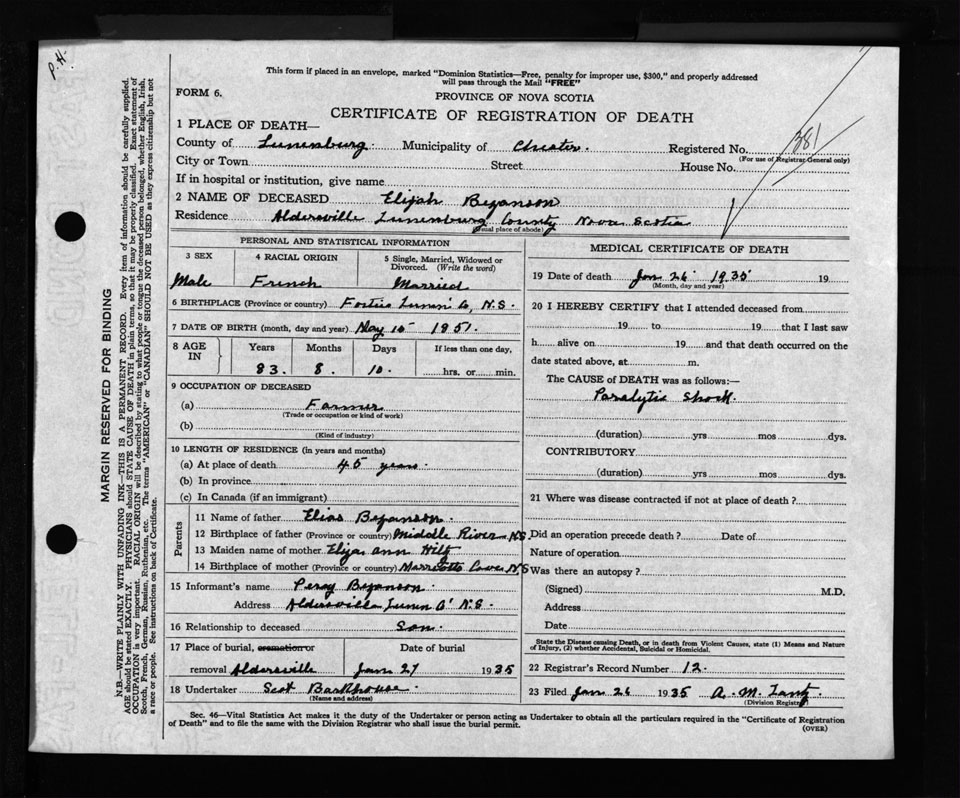 P.H.
This form if placed in an envelope, marked "Dominion Statistics—Free, penalty for improper use, $300," and properly addressed
will pass through the Mail "FREE"
FORM 6.
PROVINCE OF NOVA SCOTIA
CERTIFICATE OF REGISTRATION OF DEATH
1 PLACE OF DEATH—
County of Lunenburg. Municipality of Chester. Registered No. 381
(For use of Registrar General only)
City or Town Street House No.
If in hospital or institution, give name
2 NAME OF DECEASED Elijah Bezanson
Residence Aldersville Lunenburg County Nova Scotia
(usual place of abode)
PERSONAL AND STATISTICAL INFORMATION
3 SEX 4 RACIAL ORIGIN 5 Single, Married, Widowed or
Divorced. (Write the word)
Male French Married
6 BIRTHPLACE (Province or country) Lunn' Co, N.S.
7 DATE OF BIRTH (month, day and year) May 15 1851.
8 AGE IN Years Months Days If less than one day,
83. 8. 10. hrs. or min.
9 OCCUPATION OF DECEASED
(a) Farmer
(Trade or occupation or kind of work)
(b)
(Kind of industry)
10 LENGTH OF RESIDENCE (in years and months)
(a) At place of death 45 years.
(b) In province
(c) In Canada (if an immigrant)
Parents
11 Name of father Elias Bezanson.
12 Birthplace of father (Province or country) Middle River N.S
13 Maiden name of mother Eliza ann Hilz
14 Birthplace of mother (Province or country) Marriotts Cove N.S
15 Informant's name Percy Bezanson.
Address Aldersville Lunn Co' N.S.
16 Relationship to deceased Son.
17 Place of burial, cremation or Date of burial
removal Aldersville Jan 27 1935
18 Undertaker Scot Barkhouse.
(Name and address)
MEDICAL CERTIFICATE OF DEATH
19 Date of death Jan 26 1935 19
(Month, day and year)
20 I HEREBY CERTIFY that I attended deceased from
19 to 19 that I last saw
h alive on 19 and that death occurred on the
date stated above, at m.
The CAUSE of DEATH was as follows:—
Paralytic Shock.
(duration) yrs mos dys.
CONTRIBUTORY
(duration) yrs mos dys.
21 Where was disease contracted if not at place of death?
Did an operation precede death? Date of
Nature of operation
Was there an autopsy?
(Signed) M.D.
Address
Date
State the Disease causing Death, or in death from Violent Causes, state (1) Means and Nature
of Injury, (2) whether Accidental, Suicidal or Homicidal.
22 Registrar's Record Number 12.
23 Filed Jan 26 1935 A. M. Lantz
(Division Registrar)
Sec. 46—Vital Statistics Act makes it the duty of the Undertaker or person acting as Undertaker to obtain all the particulars required in the "Certificate of Registration
of Death" and to file the same with the Division Registrar who shall issue the burial permit.
(OVER)
MARGIN RESERVED FOR BINDING
N.B.—WRITE PLAINLY WITH UNFADING INK—THIS IS A PERMANENT RECORD. Every item of information should be carefully supplied.
AGE should be stated EXACTLY. PHYSICIANS should STATE CAUSE OF DEATH in plain terms, so that it may be properly classified. Exact statement of
OCCUPATION is very important. RACIAL ORIGIN will be described by stating to what people or tongue the deceased person belonged, whether English, Irish,
Scotch, French, German, Russian, Ruthenian, etc. The terms "AMERICAN" or "CANADIAN" SHOULD NOT BE USED as they express citizenship but not
a race or people. See instructions on back of Certificate.